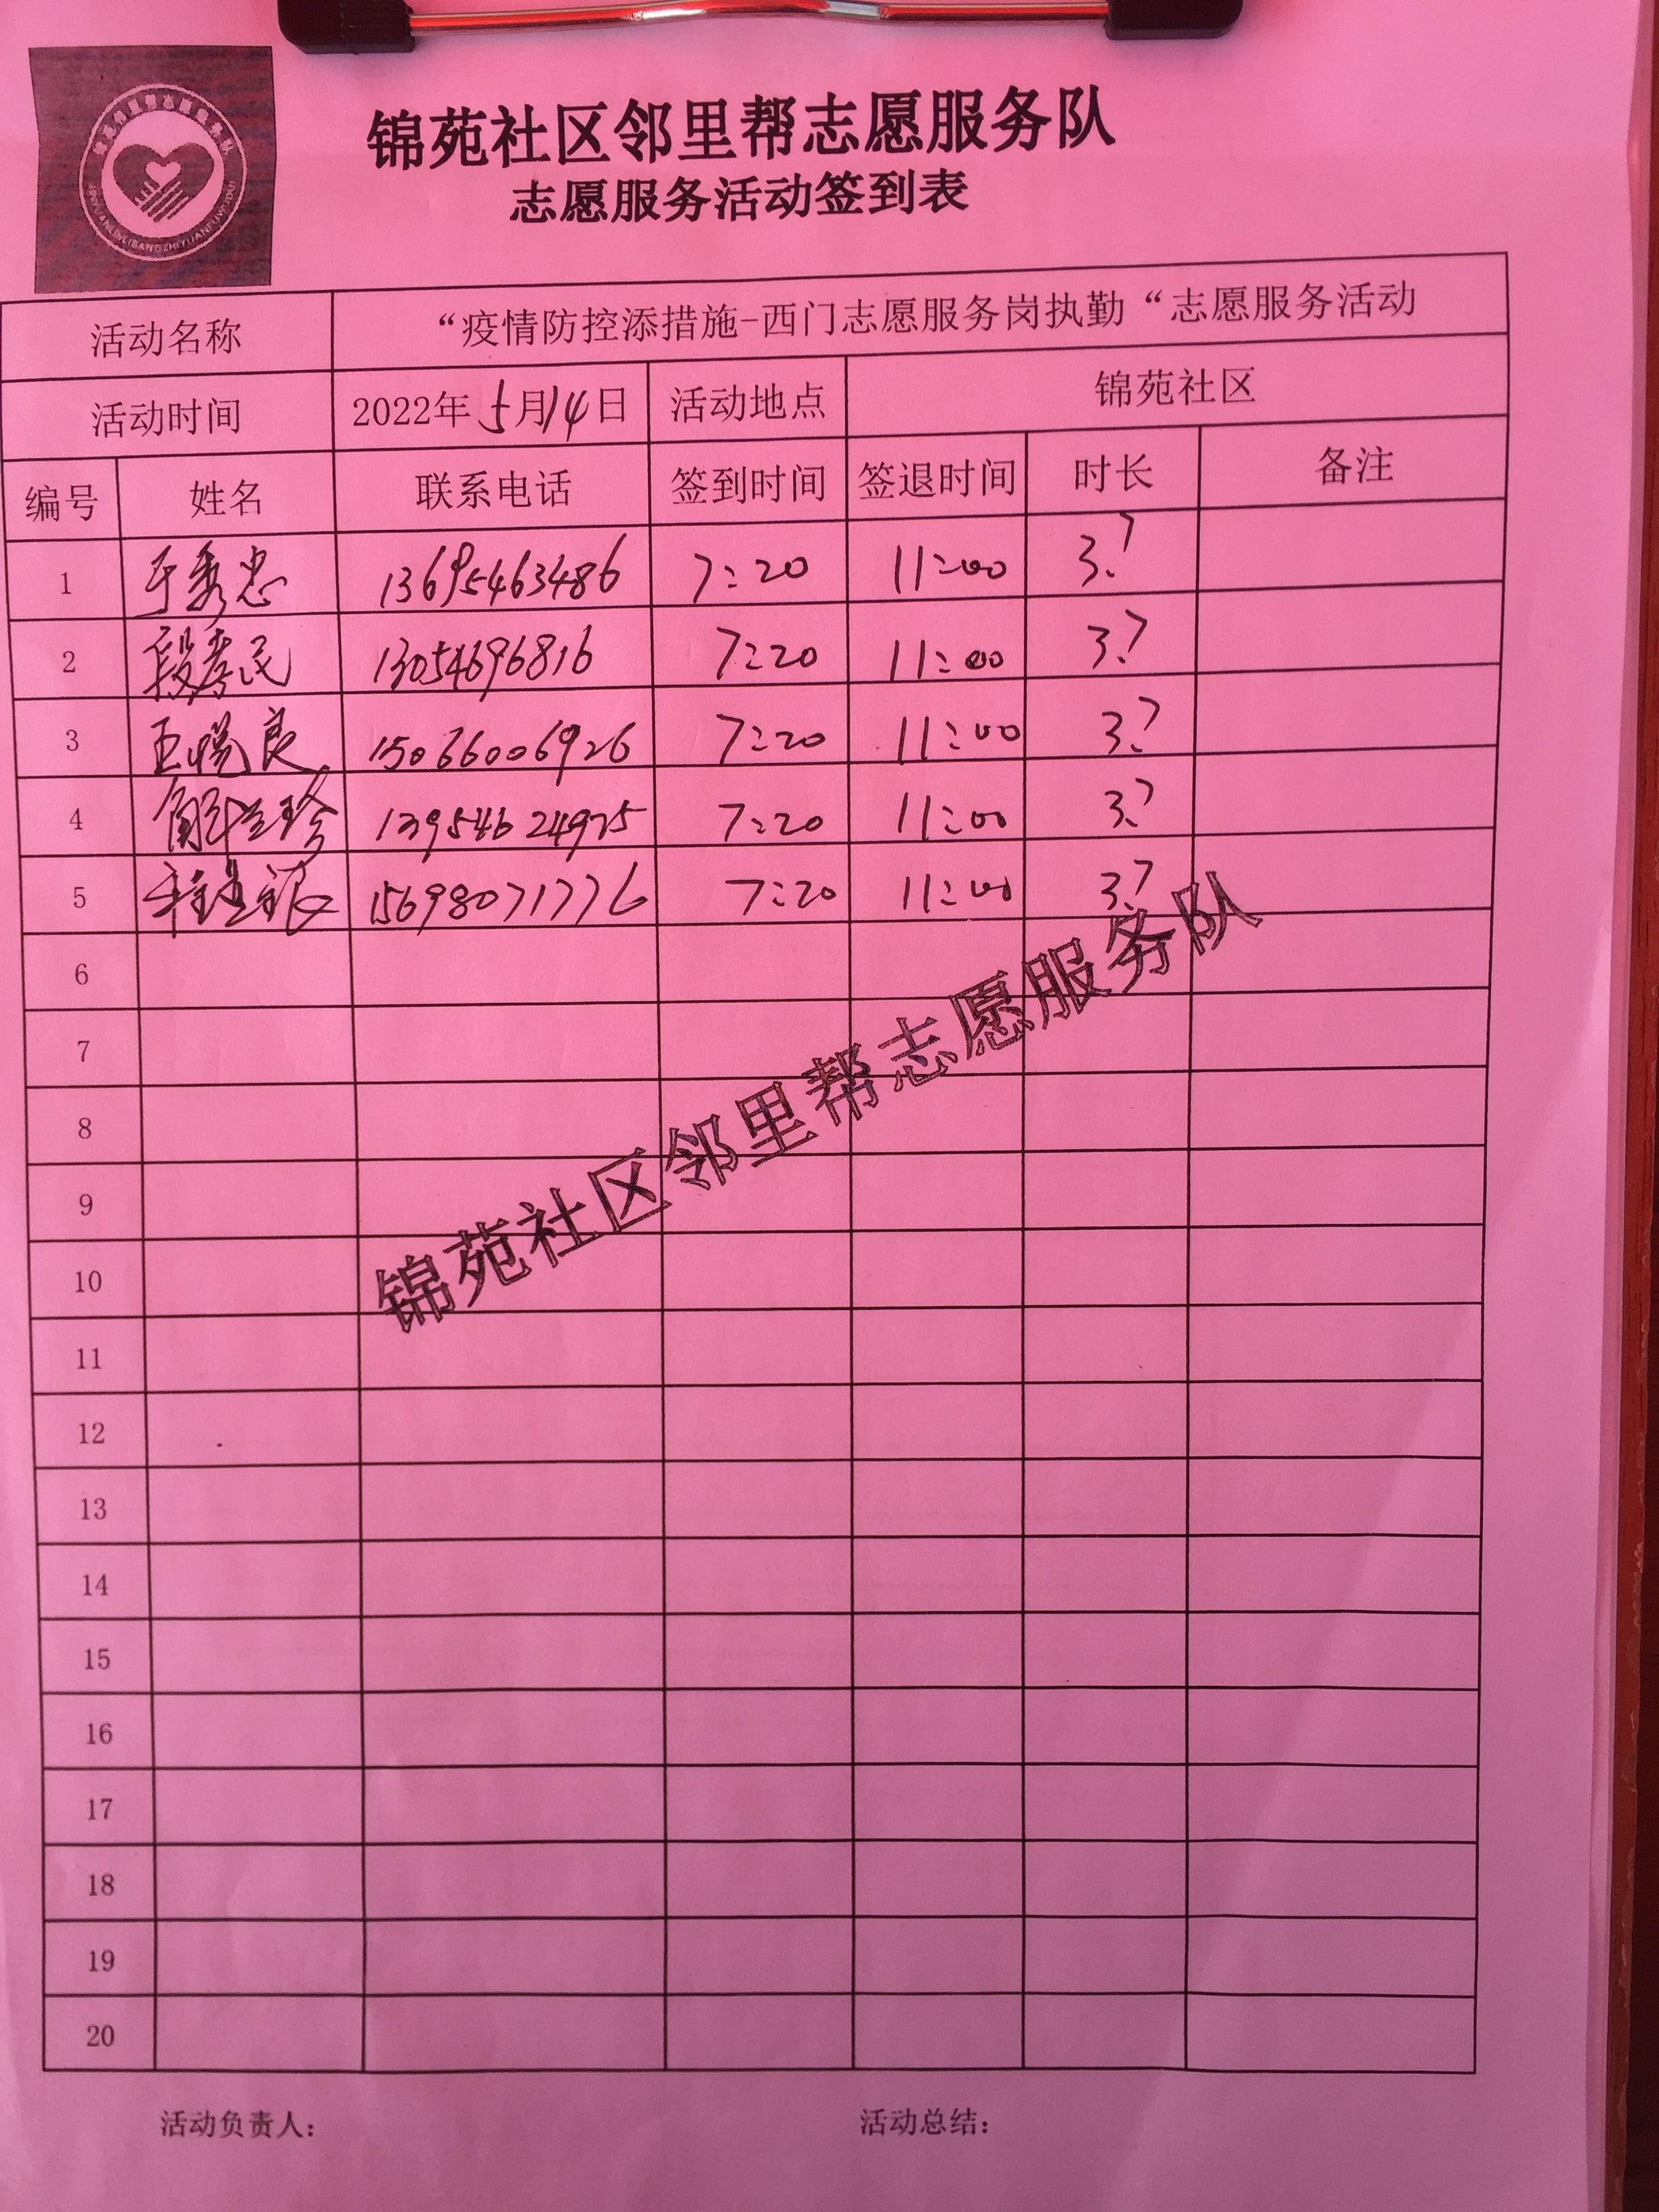 锦苑社区邻里帮志愿服务队
志愿服务活动签到表
活动名称 “疫情防控添措施-西门志愿服务岗执勤“志愿服务活动
活动时间 2022年5月14日 活动地点 锦苑社区
编号 姓名 联系电话 签到时间 签退时间 时长 备注
1 于秀忠 13695463486 7:20 11:00 3.7
2 段孝民 13054696816 7:20 11:00 3.7
3 王悦良 15066006926 7:20 11:00 3.7
4 13954624975 7:20 11:00 3.7
5 15698071776 7:20 11:00 3.7
6
7
8
9
10
11
12
13
14
15
16
17
18
19
20
锦苑社区邻里帮志愿服务队
活动负责人: 活动总结: